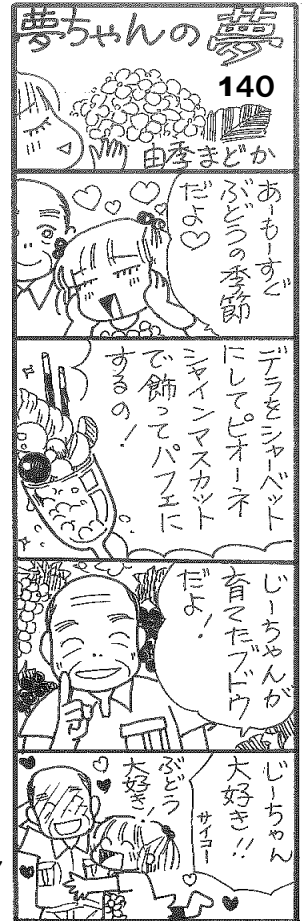 夢ちゃんの夢
140
由季まどか
あーもーすぐ
ぶどうの季節
だよ♡
デラをシャーベット
にしてピオーネ
シャインマスカット
で飾ってパフェに
するの！
じーちゃんが
育てたブドウ
だよ！
じーちゃん
大好き!!
サイコー
ぶどう
大好き！